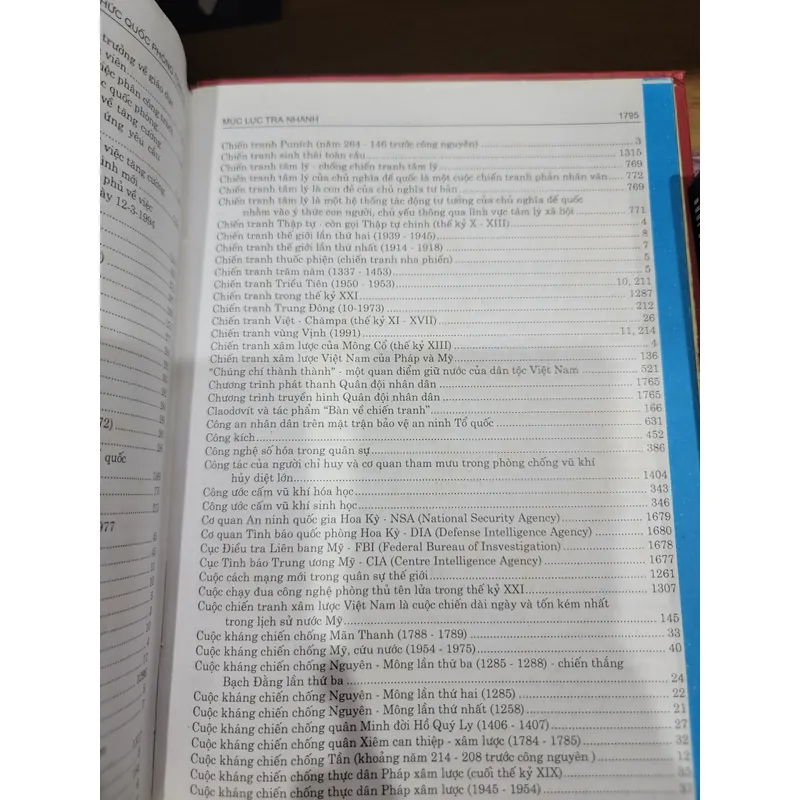 HỨC QUỐC PHÒNG
trưởng về giáo dục
viên
iệc phân công trách
c quốc phòng
về tăng cường
ứng yêu cầu
việc tăng cường
ình mới
phủ về việc
gày 12-3-1994
72)
quốc
977
MỤC LỤC TRA NHANH 1795
Chiến tranh Puních (năm 264 - 146 trước công nguyên) 3
Chiến tranh sinh thái toàn cầu 1315
Chiến tranh tâm lý - chống chiến tranh tâm lý 769
Chiến tranh tâm lý của chủ nghĩa đế quốc là một cuộc chiến tranh phản nhân văn 772
Chiến tranh tâm lý là con đẻ của chủ nghĩa tư bản 769
Chiến tranh tâm lý là một hệ thống tác động tư tưởng của chủ nghĩa đế quốc
nhằm vào ý thức con người, chủ yếu thông qua lĩnh vực tâm lý xã hội 771
Chiến tranh Thập tự - còn gọi Thập tự chinh (thế kỷ X - XIII) 4
Chiến tranh thế giới lần thứ hai (1939 - 1945) 8
Chiến tranh thế giới lần thứ nhất (1914 - 1918) 7
Chiến tranh thuốc phiện (chiến tranh nha phiến) 5
Chiến tranh trăm năm (1337 - 1453) 5
Chiến tranh Triều Tiên (1950 - 1953) 10, 211
Chiến tranh trong thế kỷ XXI 1287
Chiến tranh Trung Đông (10-1973) 212
Chiến tranh Việt - Chămpa (thế kỷ XI - XVII) 26
Chiến tranh vùng Vịnh (1991) 11, 214
Chiến tranh xâm lược của Mông Cổ (thế kỷ XIII) 4
Chiến tranh xâm lược Việt Nam của Pháp và Mỹ 136
"Chúng chí thành thành" - một quan điểm giữ nước của dân tộc Việt Nam 521
Chương trình phát thanh Quân đội nhân dân 1765
Chương trình truyền hình Quân đội nhân dân 1765
Claodơvít và tác phẩm "Bàn về chiến tranh" 166
Công an nhân dân trên mặt trận bảo vệ an ninh Tổ quốc 631
Công kích 452
Công nghệ số hóa trong quân sự 386
Công tác của người chỉ huy và cơ quan tham mưu trong phòng chống vũ khí
hủy diệt lớn 1404
Công ước cấm vũ khí hóa học 343
Công ước cấm vũ khí sinh học 346
Cơ quan An ninh quốc gia Hoa Kỳ - NSA (National Security Agency) 1679
Cơ quan Tình báo quốc phòng Hoa Kỳ - DIA (Defense Intelligence Agency) 1680
Cục Điều tra Liên bang Mỹ - FBI (Federal Bureau of Insvestigation) 1678
Cục Tình báo Trung ương Mỹ - CIA (Centre Intelligence Agency) 1677
Cuộc cách mạng mới trong quân sự thế giới 1261
Cuộc chạy đua công nghệ phòng thủ tên lửa trong thế kỷ XXI 1307
Cuộc chiến tranh xâm lược Việt Nam là cuộc chiến dài ngày và tốn kém nhất
trong lịch sử nước Mỹ 145
Cuộc kháng chiến chống Mãn Thanh (1788 - 1789) 33
Cuộc kháng chiến chống Mỹ, cứu nước (1954 - 1975) 40
Cuộc kháng chiến chống Nguyên - Mông lần thứ ba (1285 - 1288) - chiến thắng
Bạch Đằng lần thứ ba 24
Cuộc kháng chiến chống Nguyên - Mông lần thứ hai (1285) 22
Cuộc kháng chiến chống Nguyên - Mông lần thứ nhất (1258) 21
Cuộc kháng chiến chống quân Minh đời Hồ Quý Ly (1406 - 1407) 27
Cuộc kháng chiến chống quân Xiêm can thiệp - xâm lược (1784 - 1785) 32
Cuộc kháng chiến chống Tần (khoảng năm 214 - 208 trước công nguyên ) 12
Cuộc kháng chiến chống thực dân Pháp xâm lược (cuối thế kỷ XIX) 35
Cuộc kháng chiến chống thực dân Pháp xâm lược (1945 - 1954)